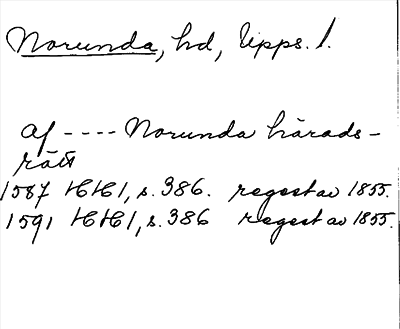 Norunda, hd, Upps. l.
af ---- Norunda härads-
rätt
1587 HH 1, s. 386. regest av 1855.
1591 HH 1, s. 386 regest av 1855.